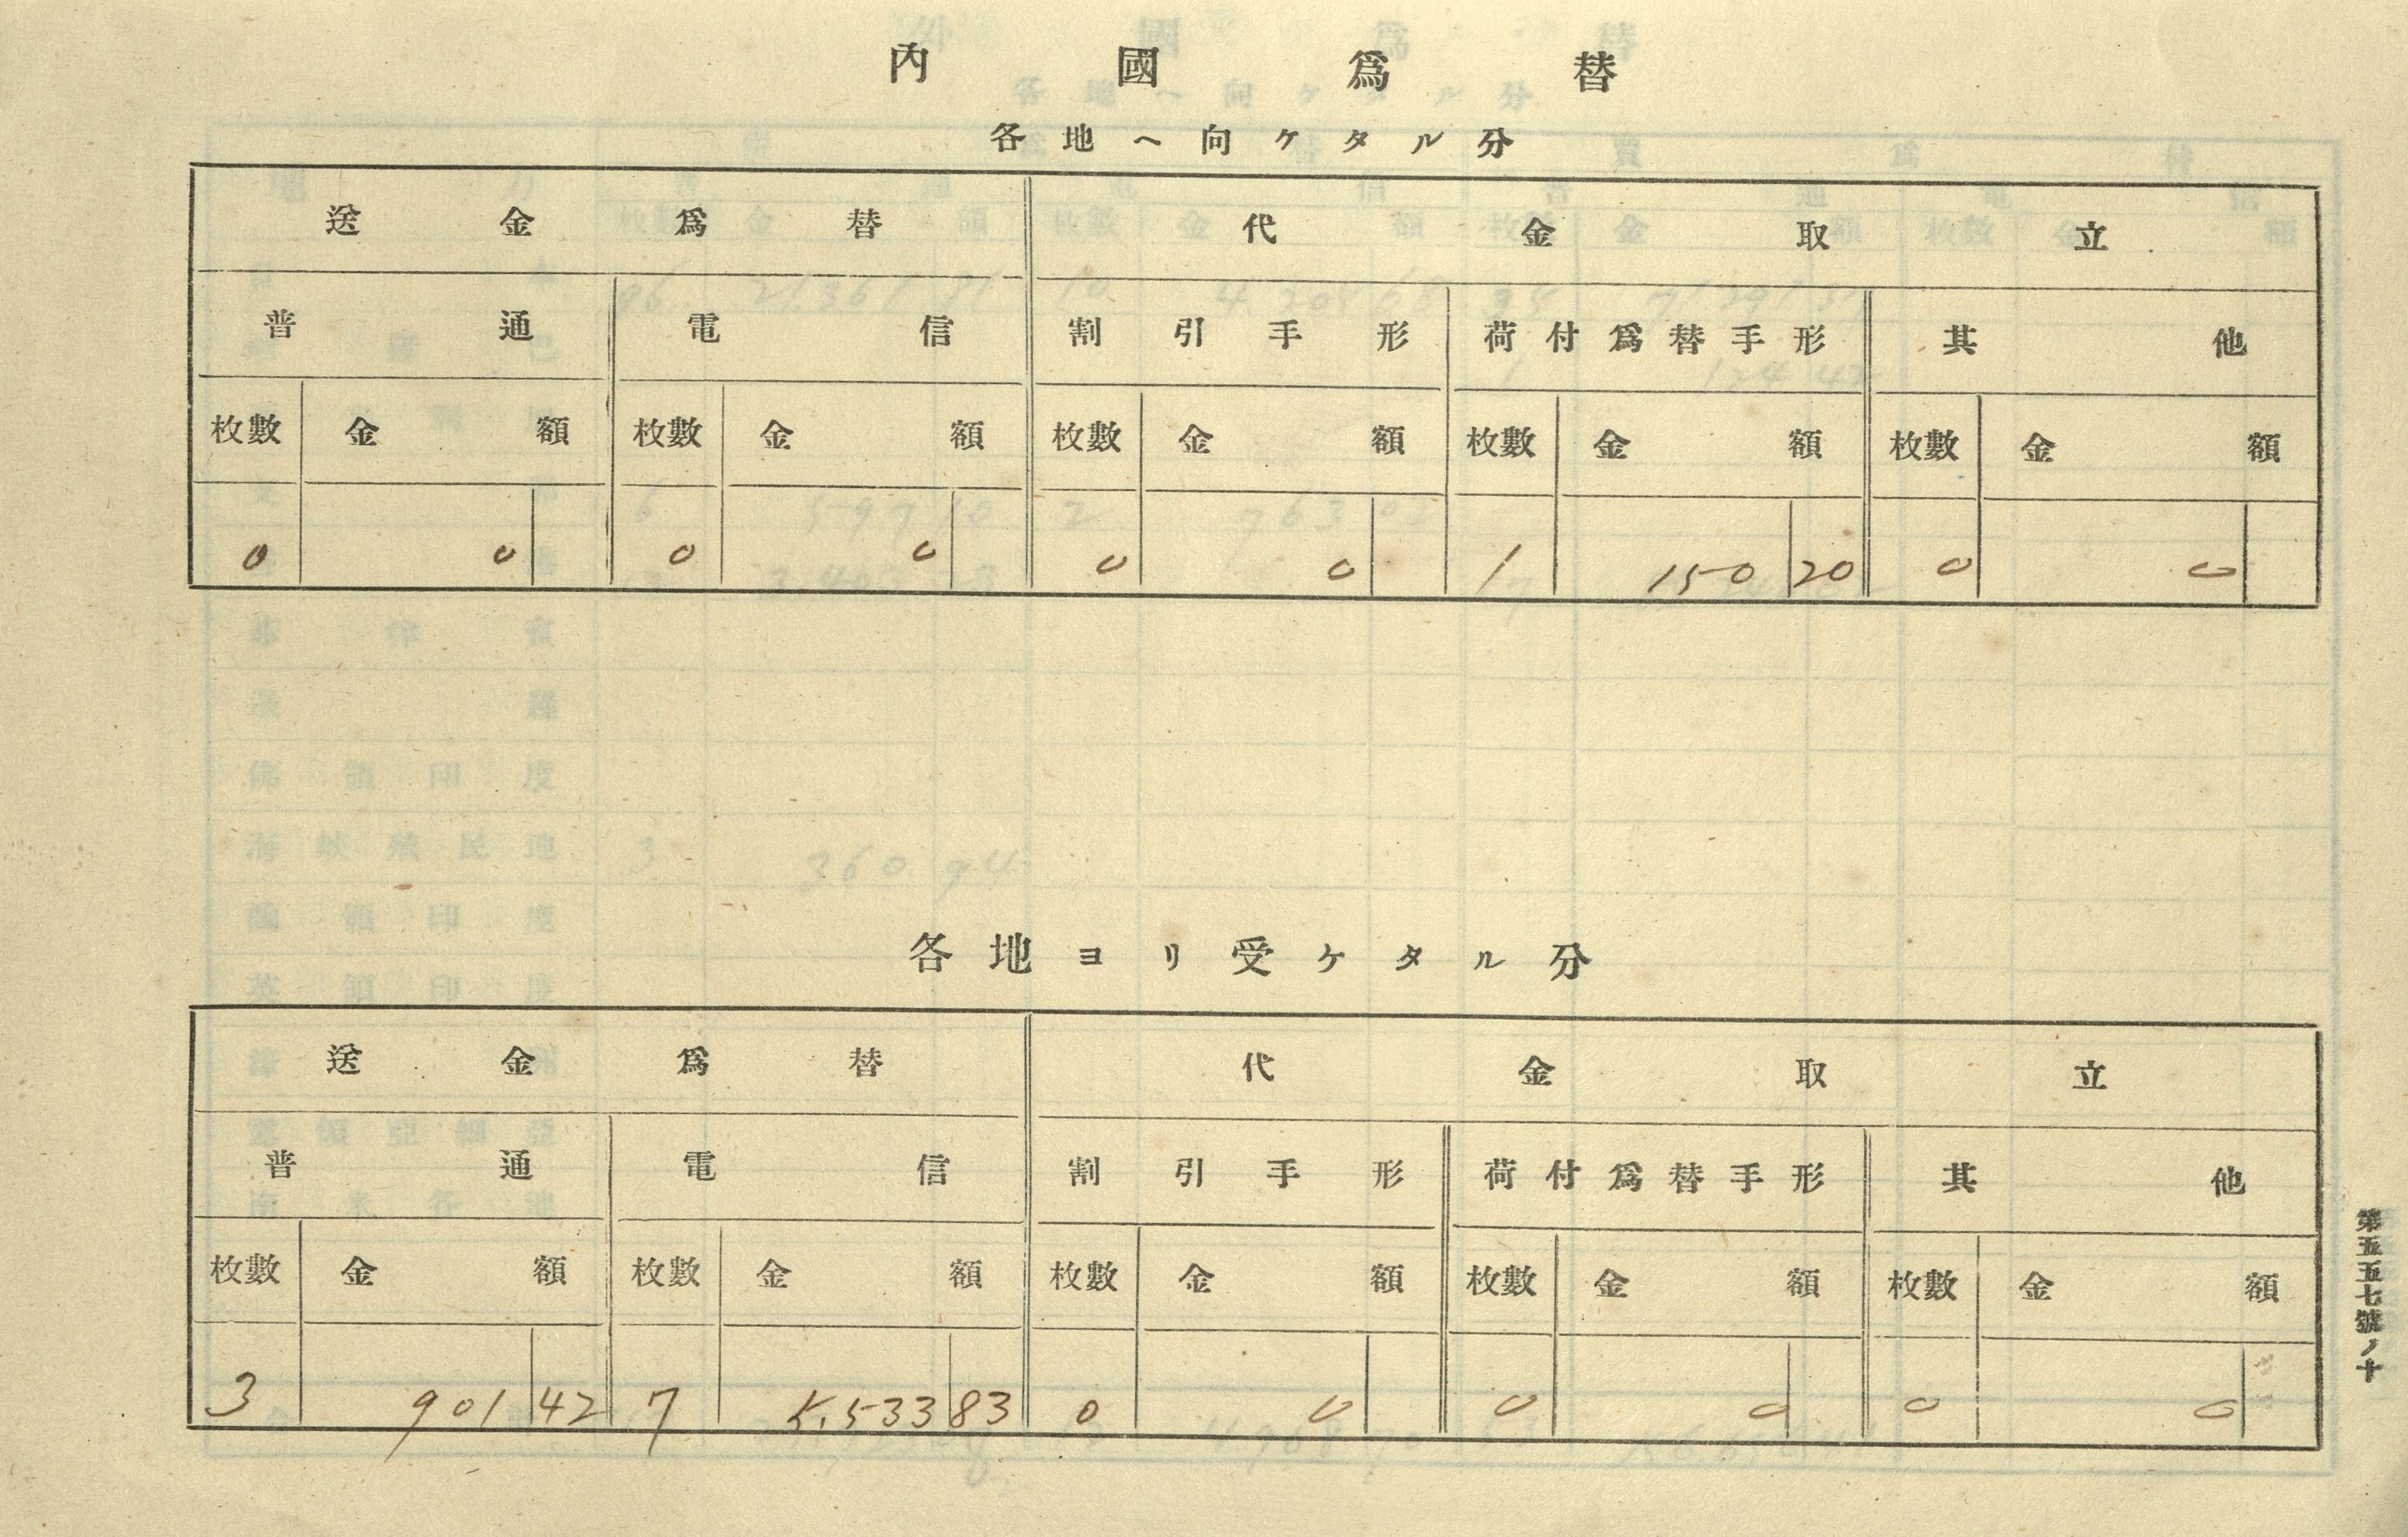 內國爲替
各地ヘ向ケタル分
送金爲替 代金取立
普通 電信 割引手形 荷付爲替手形 其他
枚數 金額 枚數 金額 枚數 金額 枚數 金額 枚數 金額
0 0 0 0 0 0 1 150 20 0 0
各地ヨリ受ケタル分
送金爲替 代金取立
普通 電信 割引手形 荷付爲替手形 其他
枚數 金額 枚數 金額 枚數 金額 枚數 金額 枚數 金額
3 901 42 7 5,533 83 0 0 0 0 0 0
第五五七號ノ十